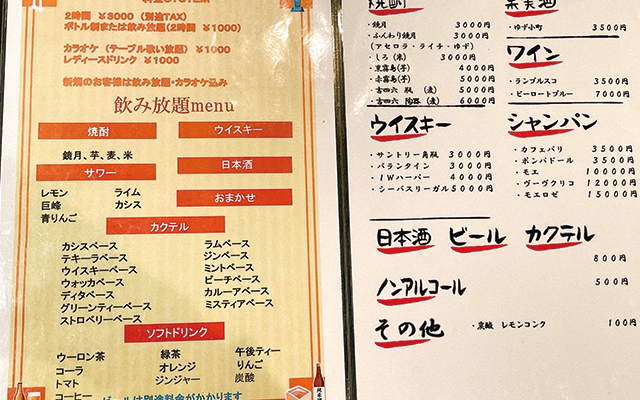 料金SYSTEM
2時間 ¥3000 (別途TAX)
ボトル制または飲み放題(2時間) ¥1000
カラオケ (テーブル歌い放題) ¥1000
レディースドリンク ¥1000
新規のお客様は飲み放題・カラオケ込み
飲み放題menu
焼酎
ウイスキー
鏡月、芋、麦、米
サワー
日本酒
レモン ライム
巨峰 カシス
青りんご
おまかせ
カクテル
カシスベース ラムベース
テキーラベース ジンベース
ウイスキーベース ミントベース
ウォッカベース ピーチベース
ディタベース カルーアベース
グリーンティーベース ミスティアベース
ストロベリーベース
ソフトドリンク
ウーロン茶 緑茶 午後ティー
コーラ オレンジ りんご
トマト ジンジャー 炭酸
コーヒー
ビールは別途料金がかかります
焼酎
・鏡月 3000円
・ふんわり鏡月 3000円
(アセロラ・ライチ・ゆず)
・しろ(米) 3000円
・黒霧島(芋) 4000円
・赤霧島(芋) 5000円
・吉四六 瓶 (麦) 5000円
・吉四六 陶器 (麦) 6000円
ウイスキー
・サントリー角瓶 3000円
・バランタイン 3000円
・IWハーパー 4000円
・シーバスリーガル 5000円
果実酒
・ゆず小町 3500円
ワイン
・ランブルスコ 3500円
・ピーロートブルー 7000円
シャンパン
・カフェパリ 3500円
・ポンパドール 3500円
・モエ 10000円
・ヴーヴクリコ 12000円
・モエロゼ 15000円
日本酒 ビール カクテル
800円
ノンアルコール 500円
その他 ・炭酸 レモンコンク 100円